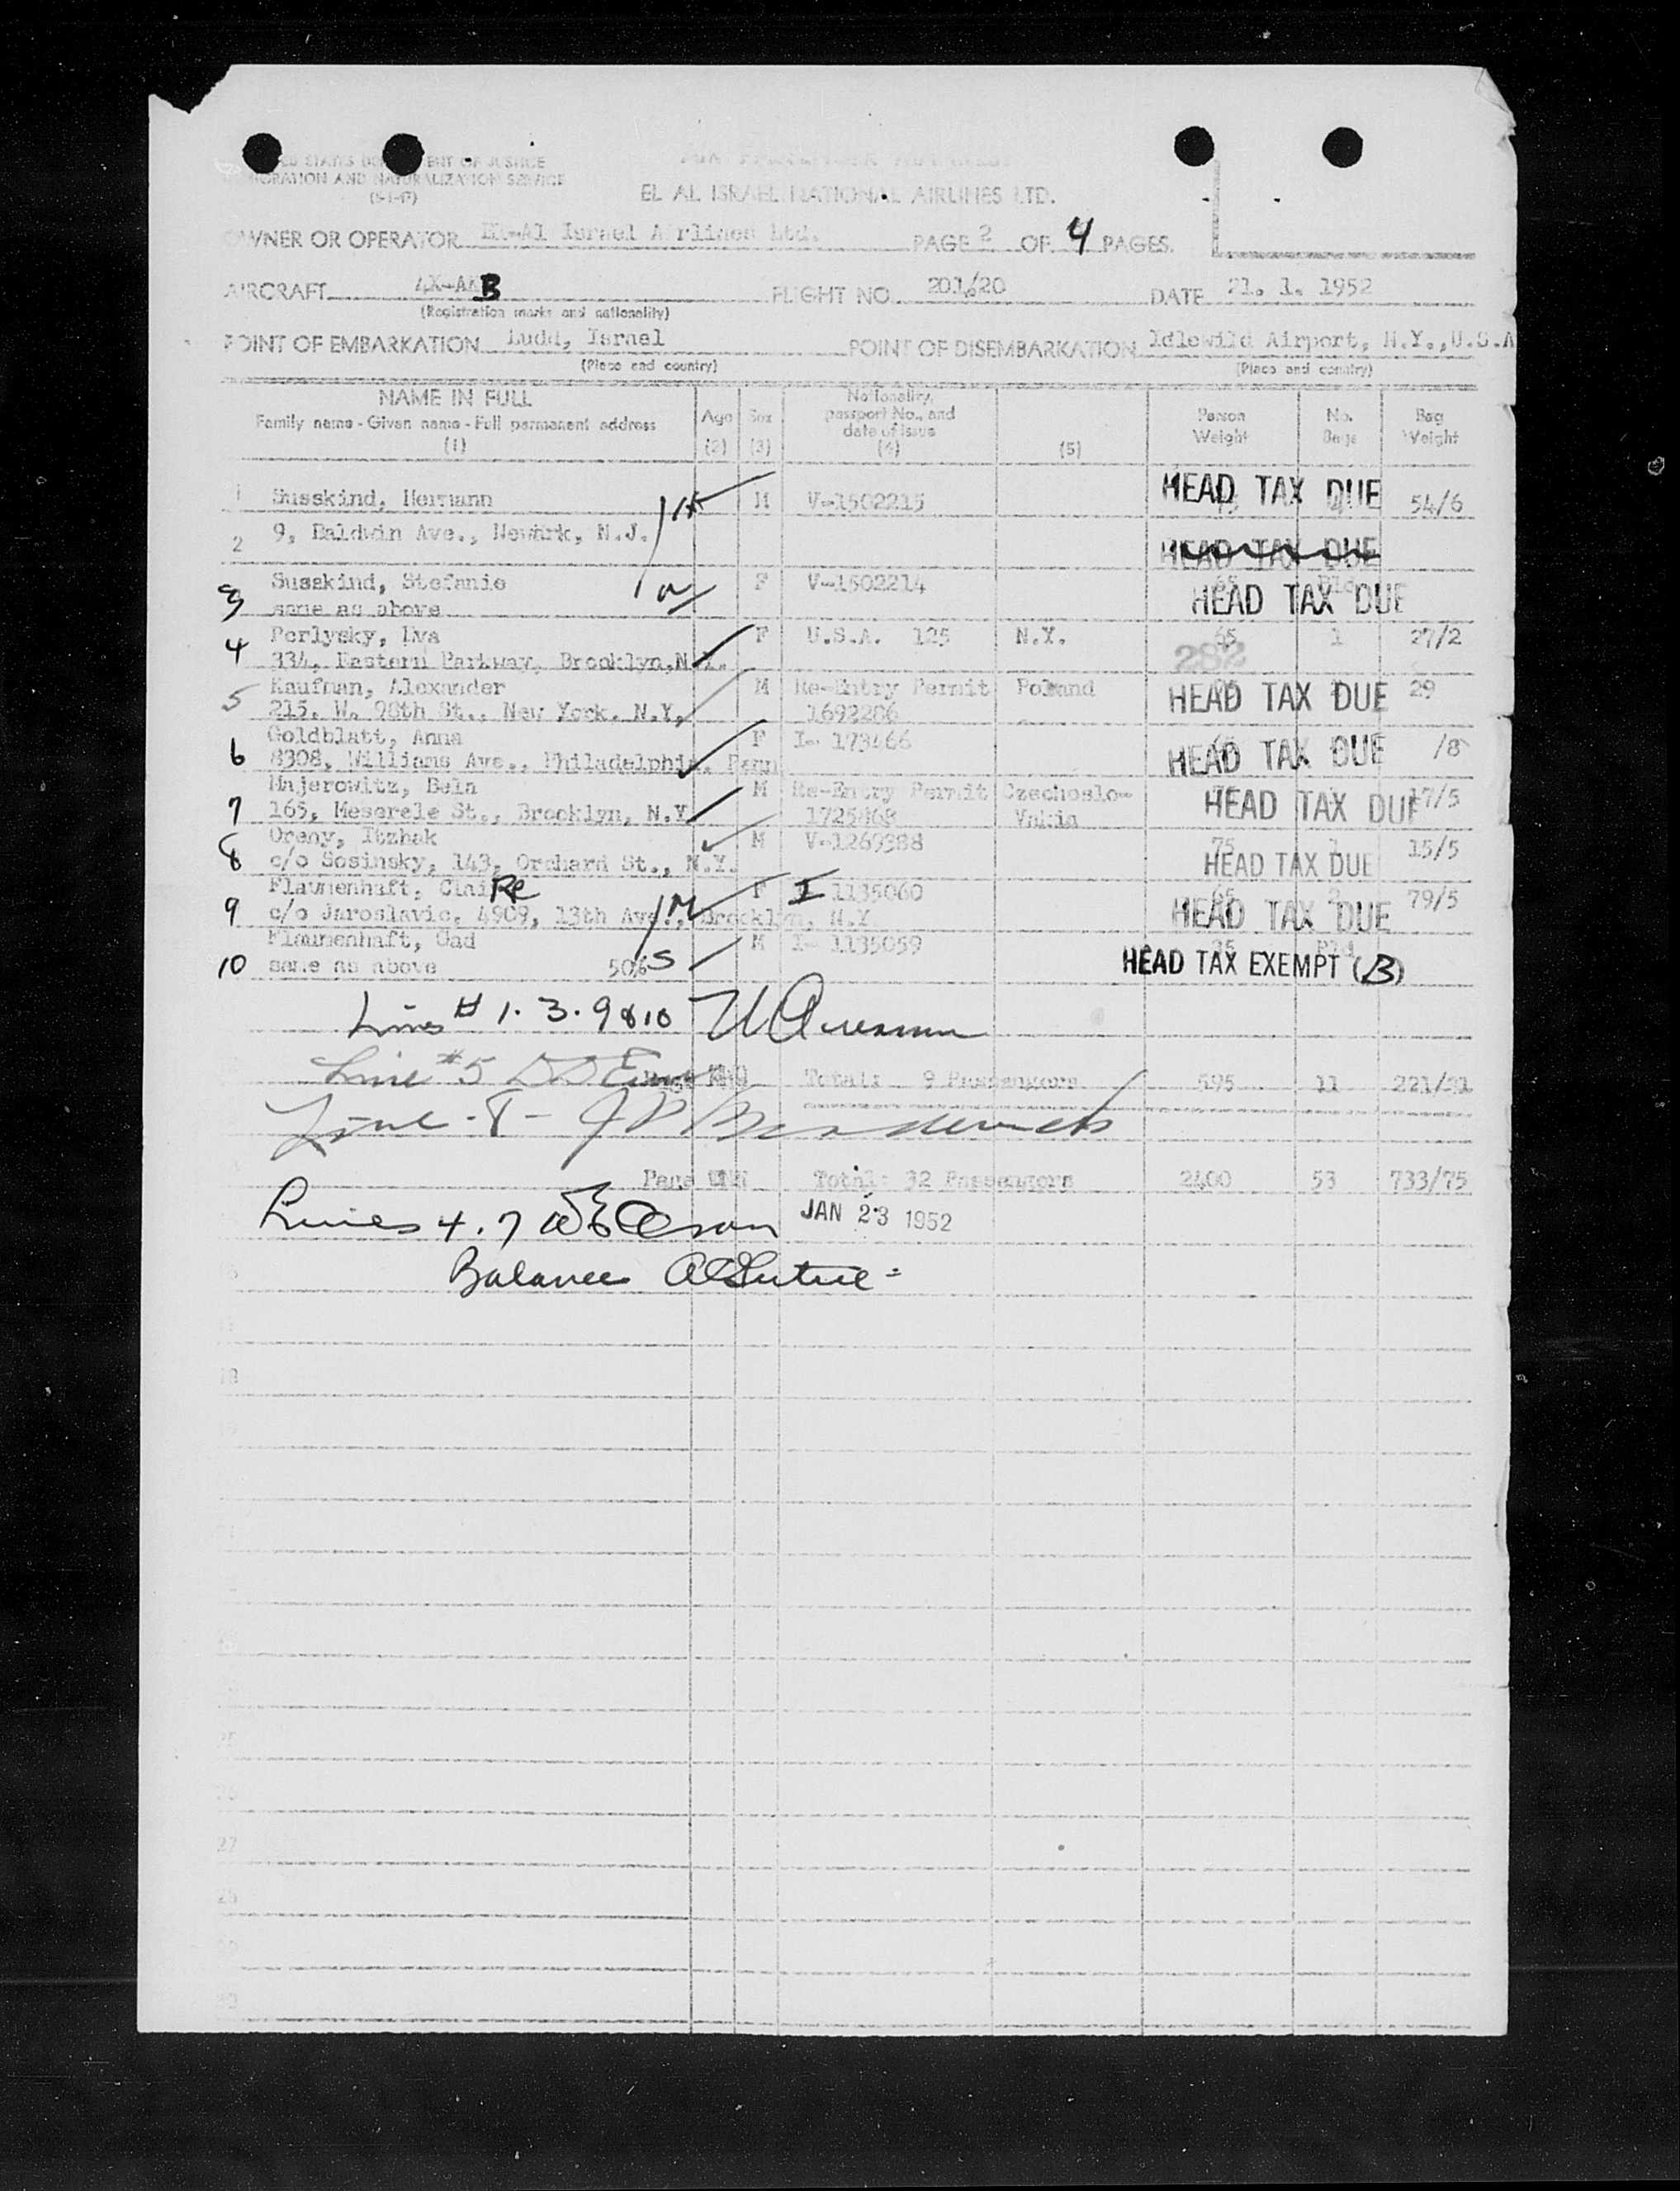 ED STATES DEPARTMENT OF JUSTICE
IMMIGRATION AND NATURALIZATION SERVICE
AIR PASSENGER MANIFEST
EL AL ISRAEL NATIONAL AIRLINES LTD.
OWNER OR OPERATOR El-Al Israel Airlines Ltd. PAGE 2 OF 4 PAGES.
AIRCRAFT 4X-AKB FLIGHT NO. 201/20 DATE 21. 1. 1952
(Registration marks and nationality)
POINT OF EMBARKATION Ludd, Israel POINT OF DISEMBARKATION Idlewild Airport, N.Y.,U.S.A
(Place and country) (Place and country)
NAME IN FULL
Family name - Given name - Full permanent address
(1)
Age
(2)
Sex
(3)
Nationality, passport No., and date of issue
(4)
(5)
Person Weight
No. Bags
Bag Weight
1 Susskind, Hermann M V-1502215 HEAD TAX DUE 54/6
2 9, Baldwin Ave., Newark, N.J. HEAD TAX DUE
Susskind, Stefanie F V-1502214 HEAD TAX DUE
3 same as above
Perlysky, Eva F U.S.A. 125 N.Y. 65 1 27/2
4 334, Eastern Parkway, Brooklyn,N.Y. 282
5 Kaufman, Alexander M Re-Entry Permit Poland HEAD TAX DUE 29
215, W. 98th St., New York, N.Y. 1692286
Goldblatt, Anna F I- 173466 HEAD TAX DUE /8
6 8308, Williams Ave., Philadelphia, Penn
Majerowitz, Bela M Re-Entry Permit Czechoslo- HEAD TAX DUE 17/5
7 165, Meserele St., Brooklyn, N.Y. 1725468 Vakia
Oreny, Itzhak M V-1269388 75 1 15/5
8 c/o Sosinsky, 143, Orchard St., N.Y. HEAD TAX DUE
Flaumenhaft, ClaiRe F I 1135060 65 2 79/5
9 c/o Jaroslavic, 4909, 13th Ave., Brooklyn, N.Y HEAD TAX DUE
Flaumenhaft, Gad M I- 1135059
10 same as above 50% S HEAD TAX EXEMPT (B)
Lines # 1. 3. 9 & 10
Line #5
Total: 9 Passengers 595 11 221/31
Line - 8 -
Page Total: 32 Passengers 2400 53 733/75
Lines 4. 7
JAN 23 1952
Balance
18
27
28